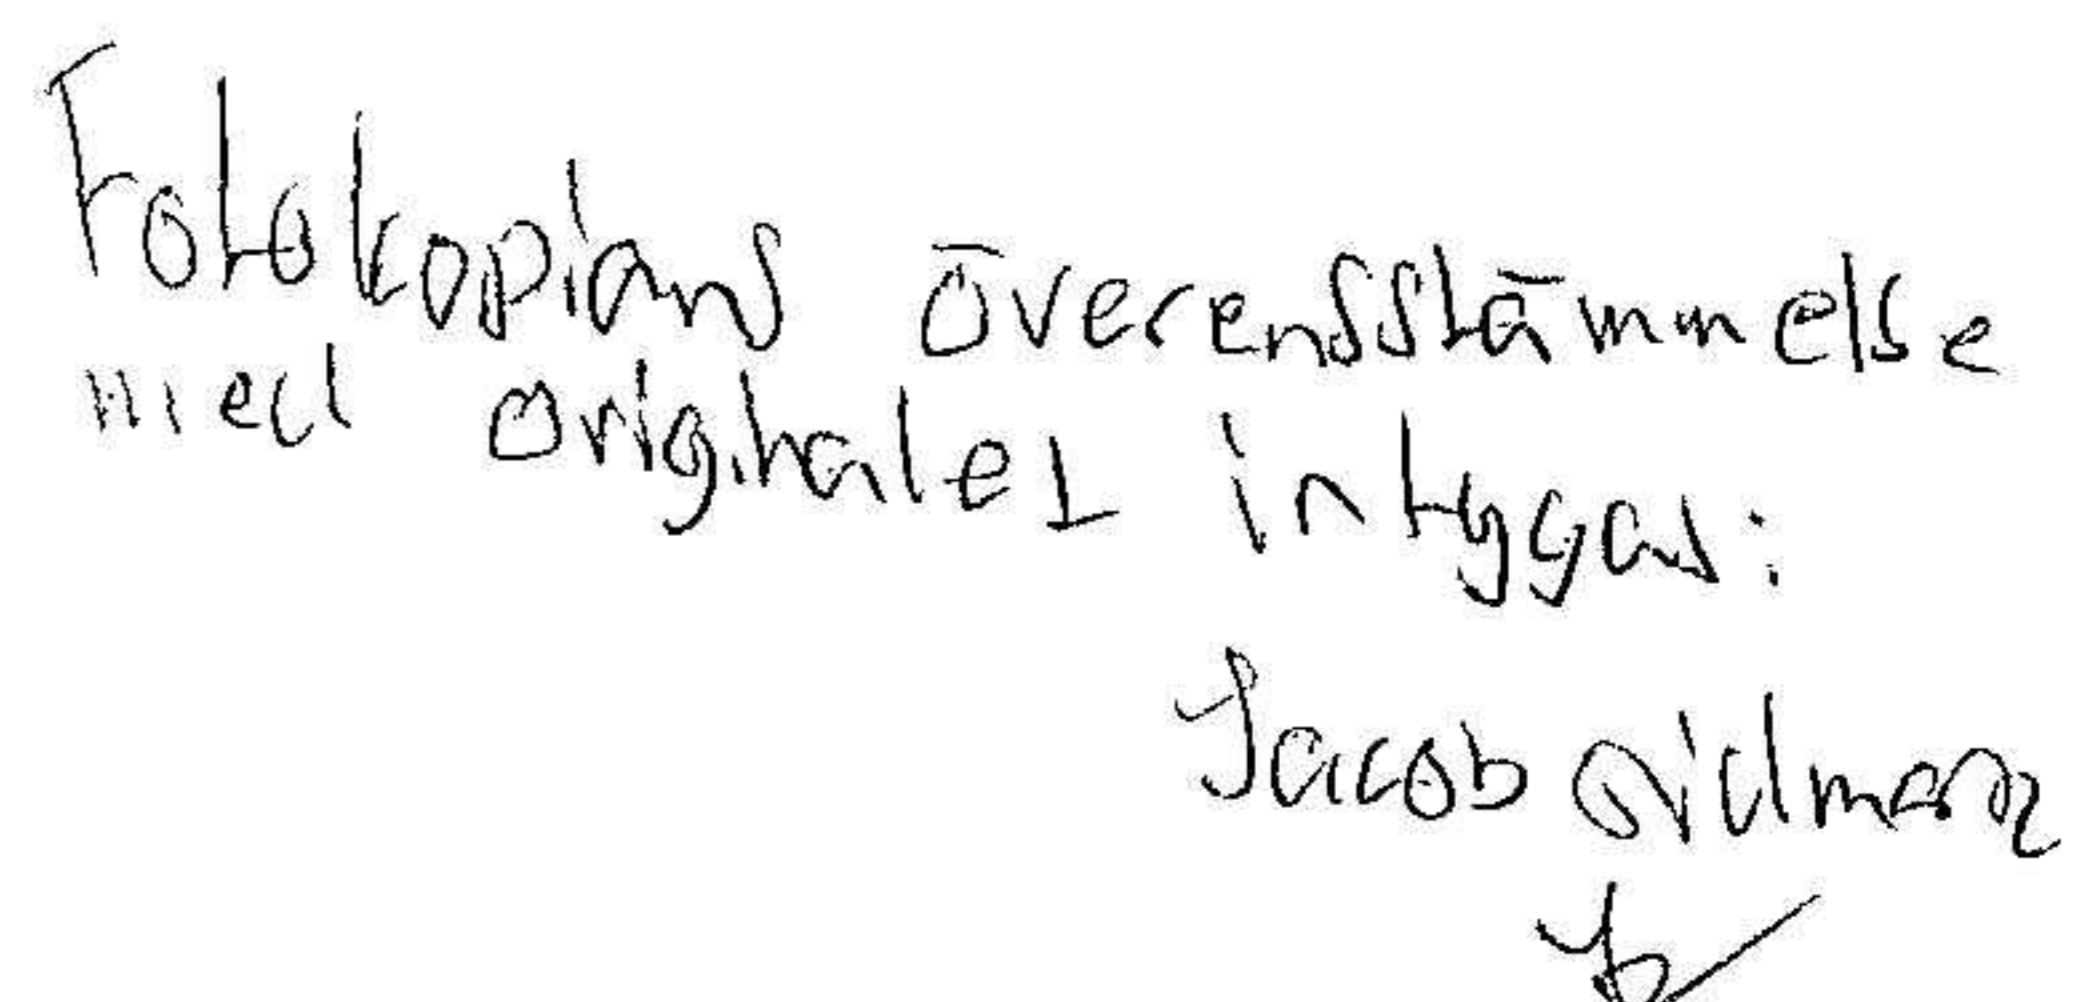 Fotokopians överensstämmelse
med originalet intygas:
Jacob